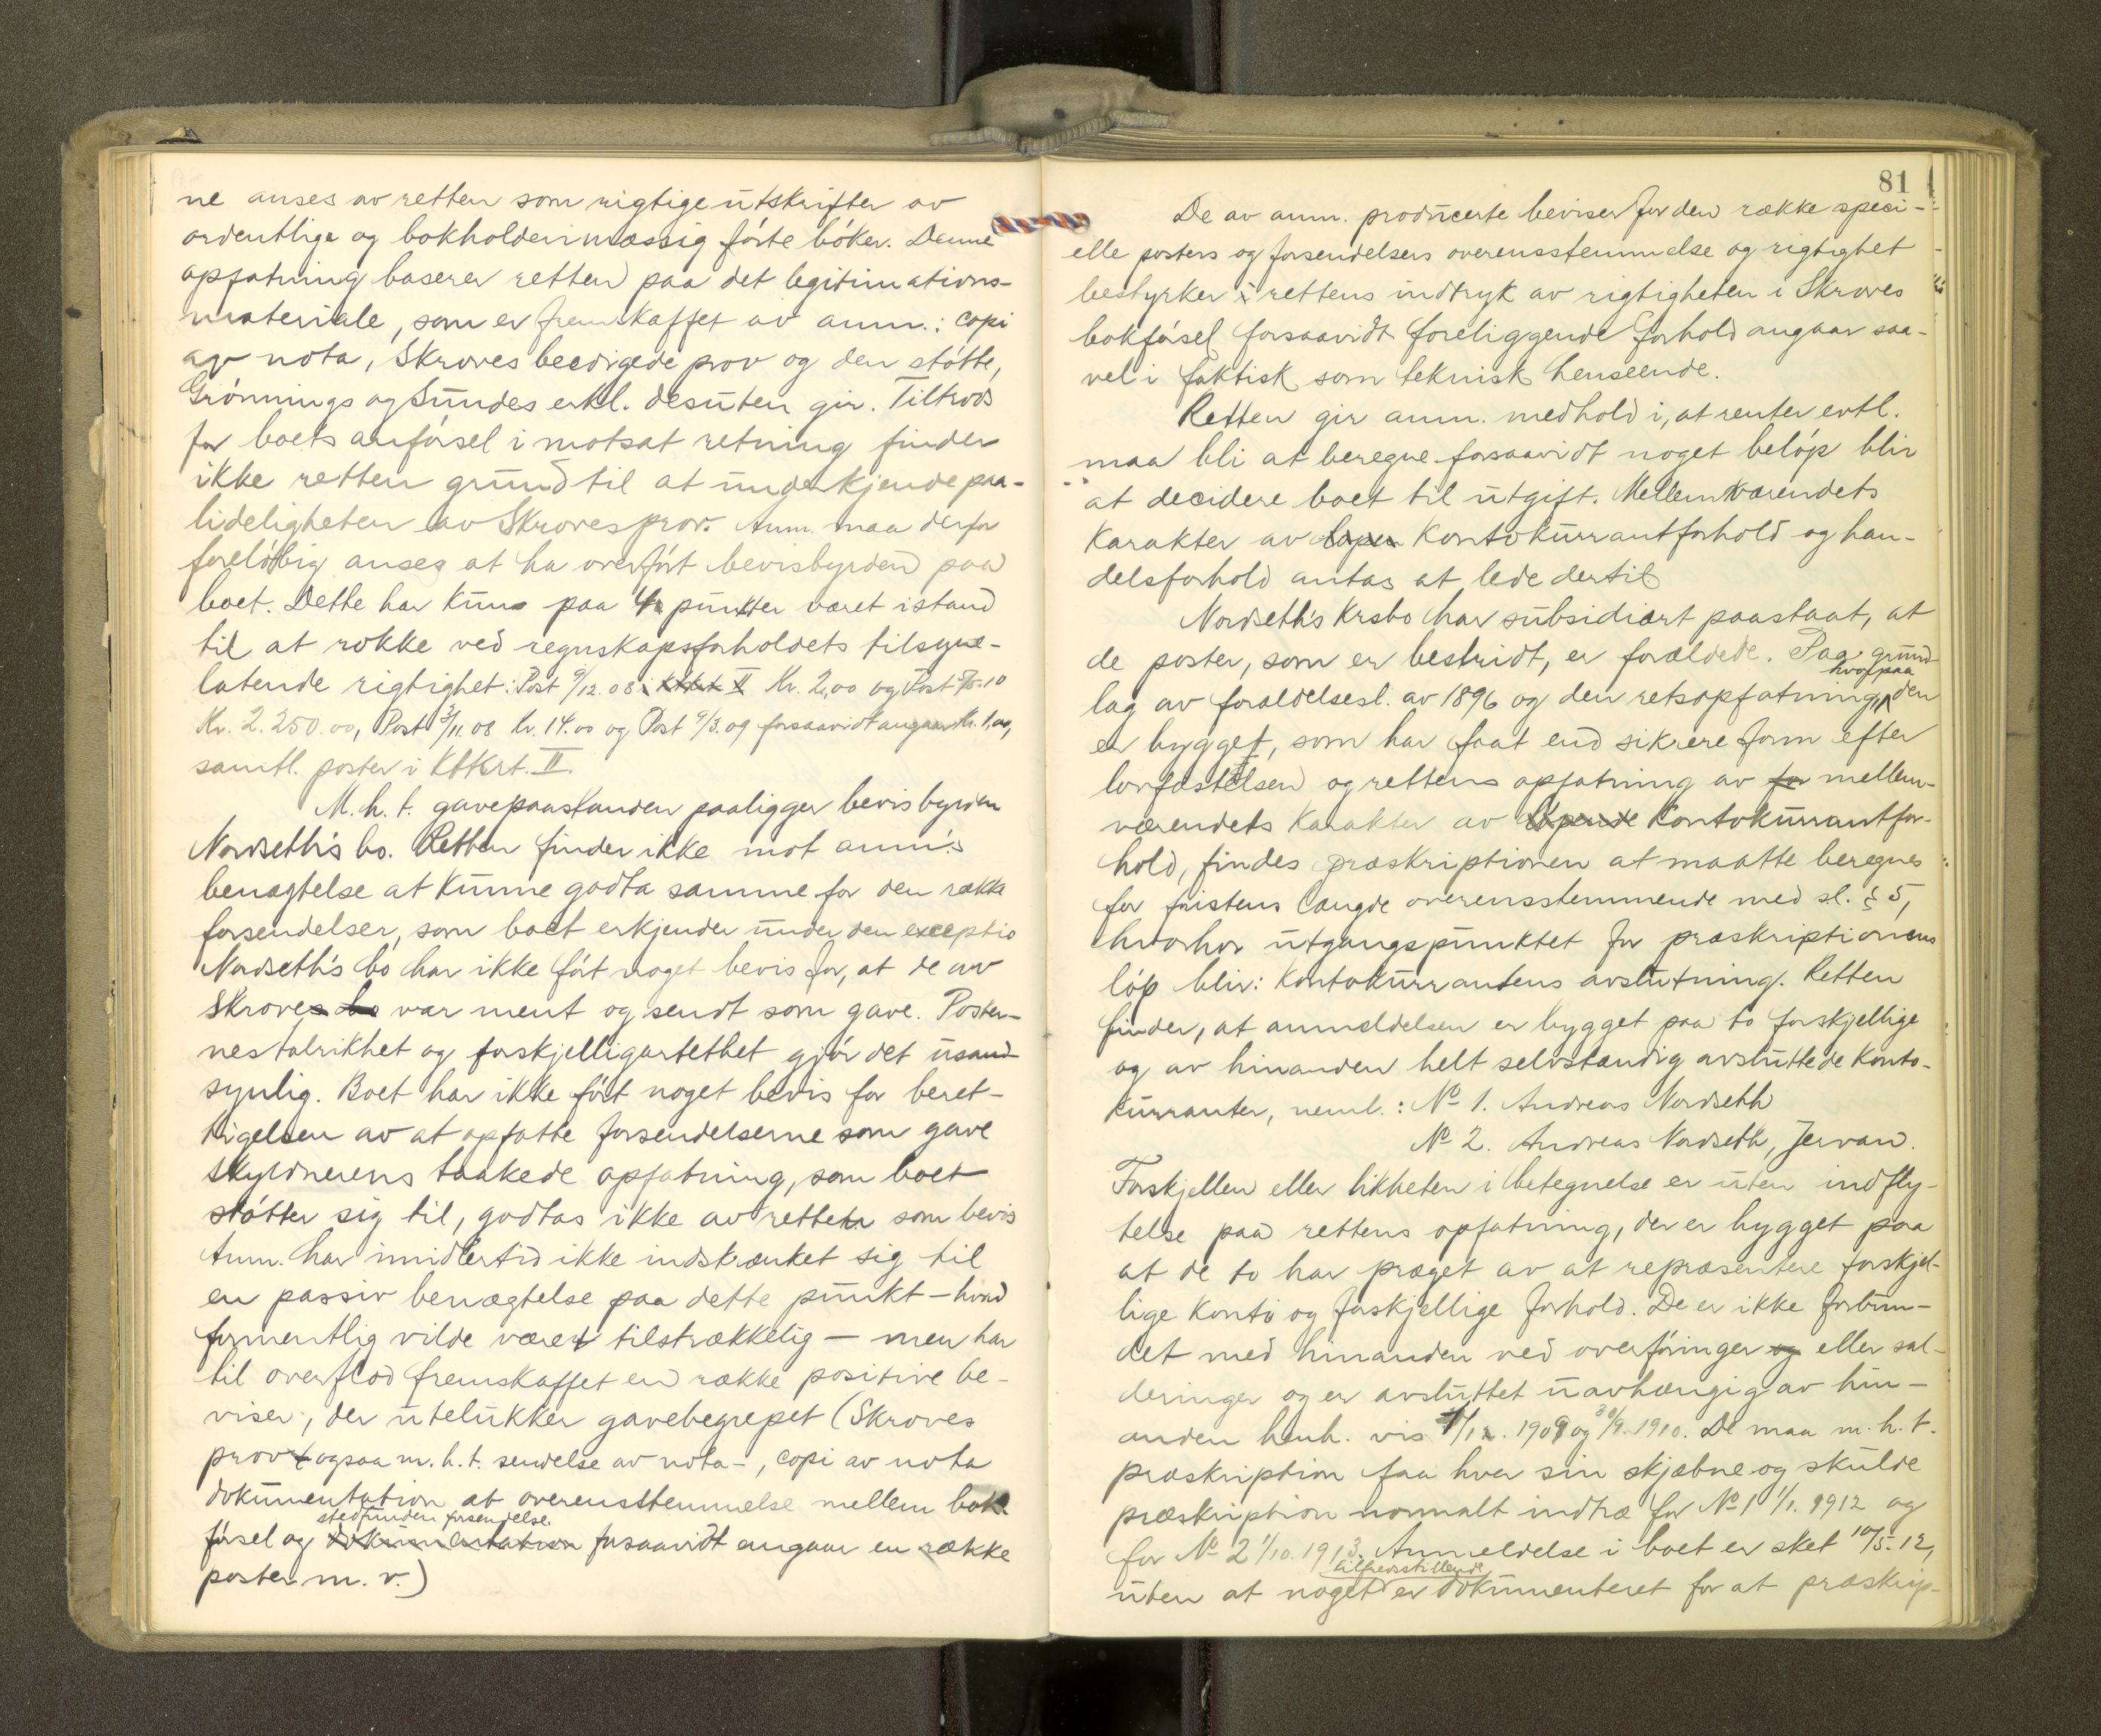 ne anses av retten som rigtige utskrifter av
ordentlige og bokholderimæssig førte bøker. Denne
opfatning baserer retten paa det legitimations-
materiale, som er fremskaffet av anm.: copi
av nota, Skroves beedigede prov og den støtte,
Grønnings og Sundes erkl. desuten gir. Tiltrods
for boets anførsel i motsat retning finder
ikke retten grund til at underkjende paa-
lideligheten av Skroves prov. Anm. maa derfor
foreløbig anses at ha overført bevisbyrden paa
boet. Dette har kun paa 4 punkter været istand
til at rokke ved regnskapsforholdets tilsyne-
latende rigtighet: Post 9/12.08 II Kr. 2,00 og Post 5/5.10
Kr. 2.250.00, Post 3/11.08 kr. 14.00 og Post 9/3.09 forsaavidt angaar Kr. 1,00,
samtl. poster i Ktkrt. II.
M. h. t. gavepaastanden paaligger bevisbyrden
Nordseth's bo. Retten finder ikke mot anm.'s
benægtelse at kunne godta samme for den række
forsendelser, som boet erkjender under den exceptio
Nordseth's bo har ikke ført noget bevis for, at de av
Skrove var ment og sendt som gave. Poster-
nes talrikhet og forskjelligartethet gjør det usand-
synlig. Boet har ikke ført noget bevis for beret-
tigelsen av at opfatte forsendelserne som gave
Skyldnerens taakede opfatning, som boet
støtter sig til, godtas ikke av retten som bevis
Anm. har imidlertid ikke indskrænket sig til
en passiv benægtelse paa dette punkt – hvad
formentlig vilde været tilstrækkelig – men har
til overflod fremskaffet en række positive be-
viser, der utelukker gavebegrepet (Skroves
prov ogsaa m. h. t. sendelse av nota-, copi av nota
dokumentation at overensstemmelse mellem bok
stedfunden forsendelse
førsel og dokumentation forsaavidt angaar en række
poster m. v.)
81
De av anm. producerte beviser for den række speci-
elle posters og forsendelsers overensstemmelse og rigtighet
bestyrker rettens indtryk av rigtigheten i Skroves
bokførsel forsaavidt foreliggende forhold angaar saa-
vel i faktisk som teknisk henseende.
Retten gir anm. medhold i, at renter evtl.
maa bli at beregne forsaavidt noget beløp blir
at decidere boet til utgift. Mellemværendets
Karakter av Kontokurrantforhold og han-
delsforhold antas at lede dertil
Nordseth's krsbo har subsidiært paastaat, at
de poster, som er bestridt, er forældede. Paa grund-
hvorpaa
lag av forældelsesl. av 1896 og den retsopfatning, den
er bygget, som har faat end sikrere form efter
lovfæstelsen og rettens opfatning av for mellem-
værendets Karakter av løpende Kontokurrantfor-
hold, findes præskriptionen at maatte beregnes
for fristens længde overensstemmende med sl. § 5,
hvorhor utgangspunktet for præskriptionens
løp blir: Kontokurrantens avslutning. Retten
finder, at anmeldelsen er bygget paa to forskjellige
og av hinanden helt selvstændig avsluttede Konto-
kurranter, neml.: No 1. Andreas Nordseth
No 2. Andreas Nordseth, Jervan.
Forskjellen eller likheten i betegnelse er uten indfly-
telse paa rettens opfatning, der er bygget paa
at de to har præget av at repræsentere forskjel-
lige Konti og forskjellige forhold. De er ikke forbun-
det med hinanden ved overføringer og eller sal-
deringer og er avsluttet uavhængig av hin-
anden henh. vis 1/12. 1909 og 30/9. 1910. De maa m. h. t.
præskription faa hver sin skjæbne og skulde
præskription normalt indtræ for No 1 1/1. 1912 og
for No 2 1/10. 1913. Anmeldelse i boet er sket 10/5. 12,
tilfredsstillende
uten at noget er dokumenteret for at præskrip-